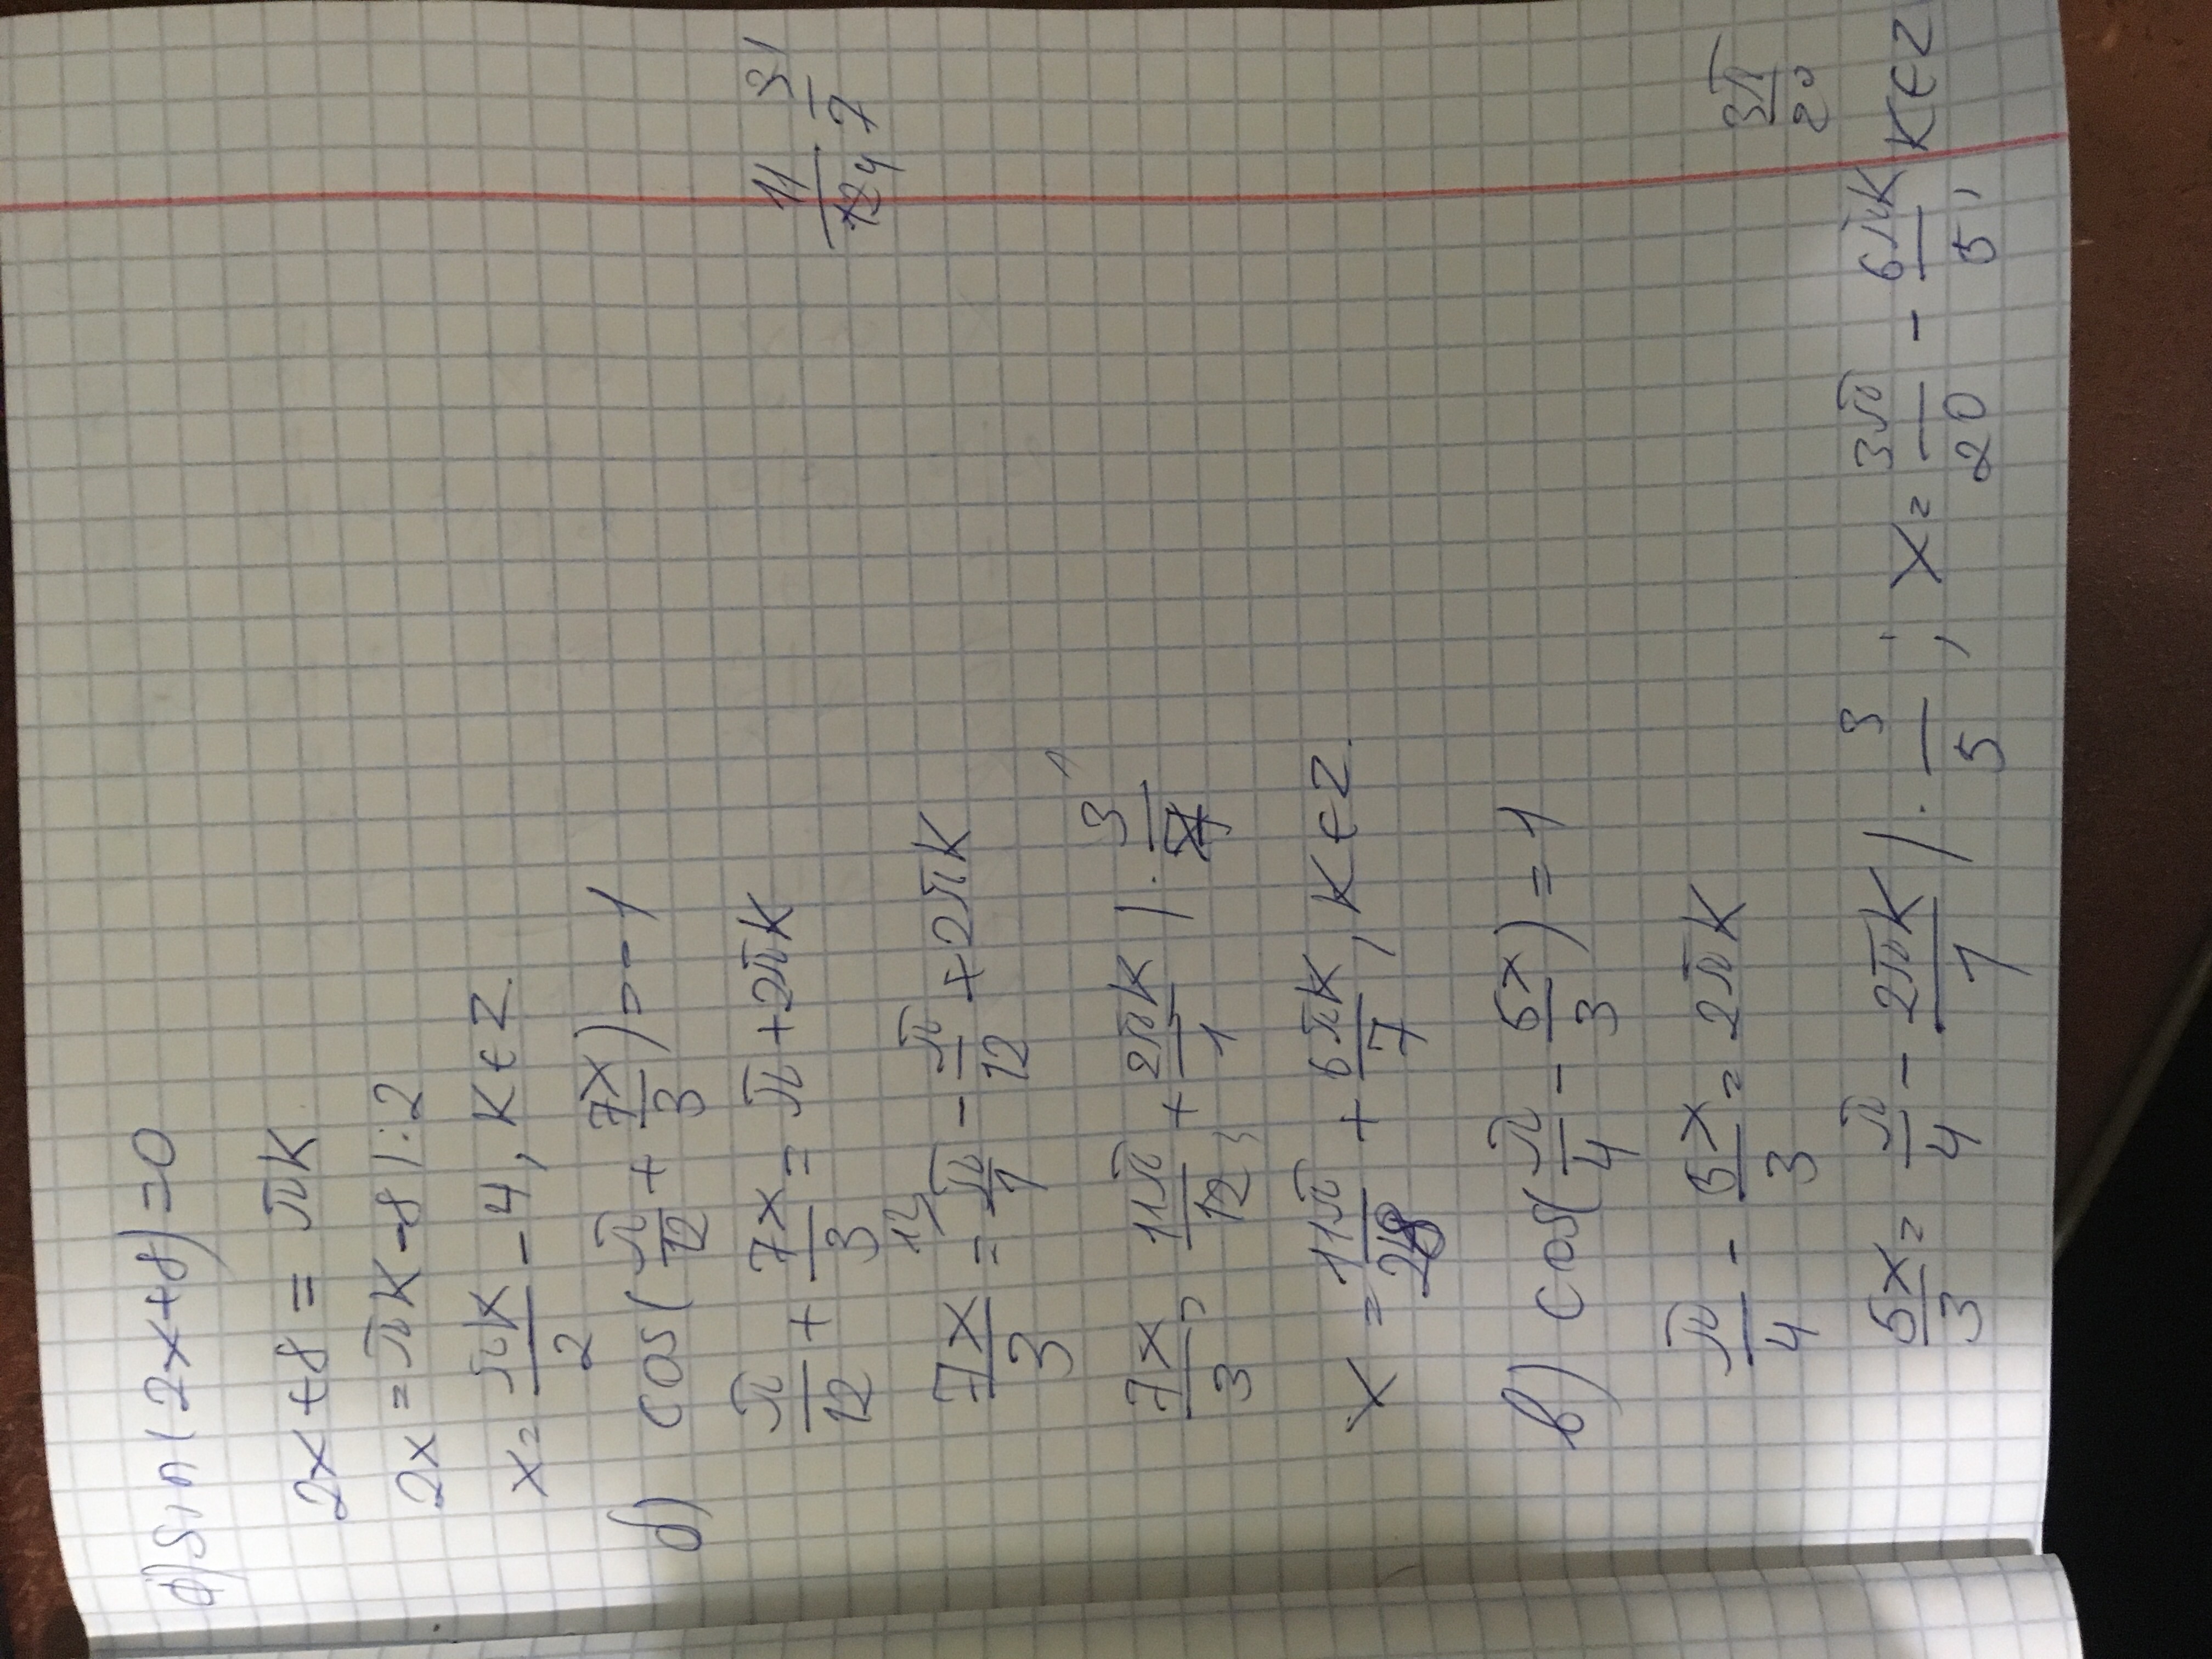 а) sin(2x+8)=0
2x+8 = πk
2x = πk-8 |:2
x = πk/2 - 4, k ∈ Z.
б) cos(π/12 + 7x/3) = -1
π/12 + 7x/3 = π + 2πk
7x/3 = 12⟍ π/1 - π/12 + 2πk
7x/3 = 11π/12 + 2πk/1 | · 3/7
11/12 4 3 1/7
x = 11π/28 + 6πk/7, k ∈ Z.
в) cos(π/4 - 5x/3) = 1
π/4 - 5x/3 = 2πk
3π/20
5x/3 = π/4 - 2πk/1 | · 3/5 ; x = 3π/20 - 6πk/5, k ∈ Z